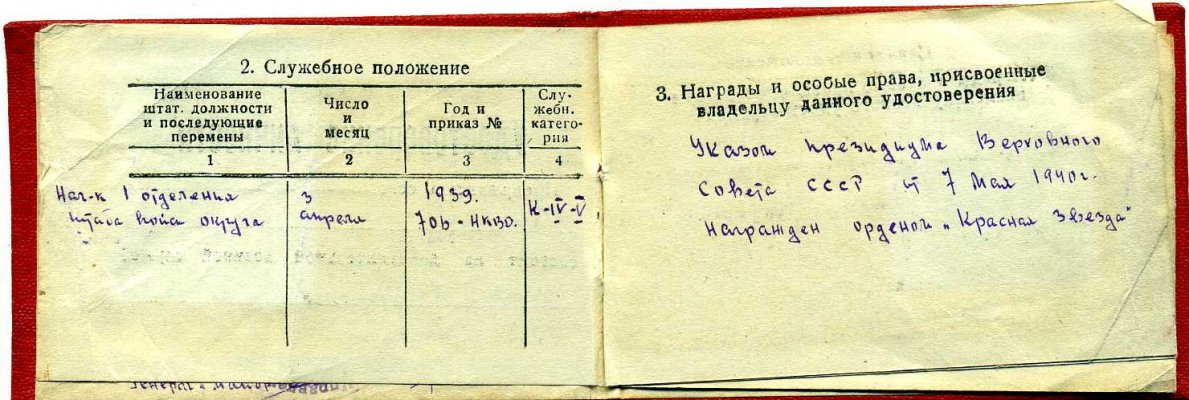 2. Служебное положение
Наименование
штат. должности
и последующие
перемены
Число
и
месяц
Год и
приказ №
Слу-
жебн.
катего-
рия
1 2 3 4
Нач-к 1 отделения
штаба войск округа
3
апреля
1939.
706-НКВД.
К-IV-V
3. Награды и особые права, присвоенные
владельцу данного удостоверения
Указом президиума Верховного
Совета СССР от 7 Мая 1940г.
Награжден орденом „Красная Звезда"
Генерал-майор